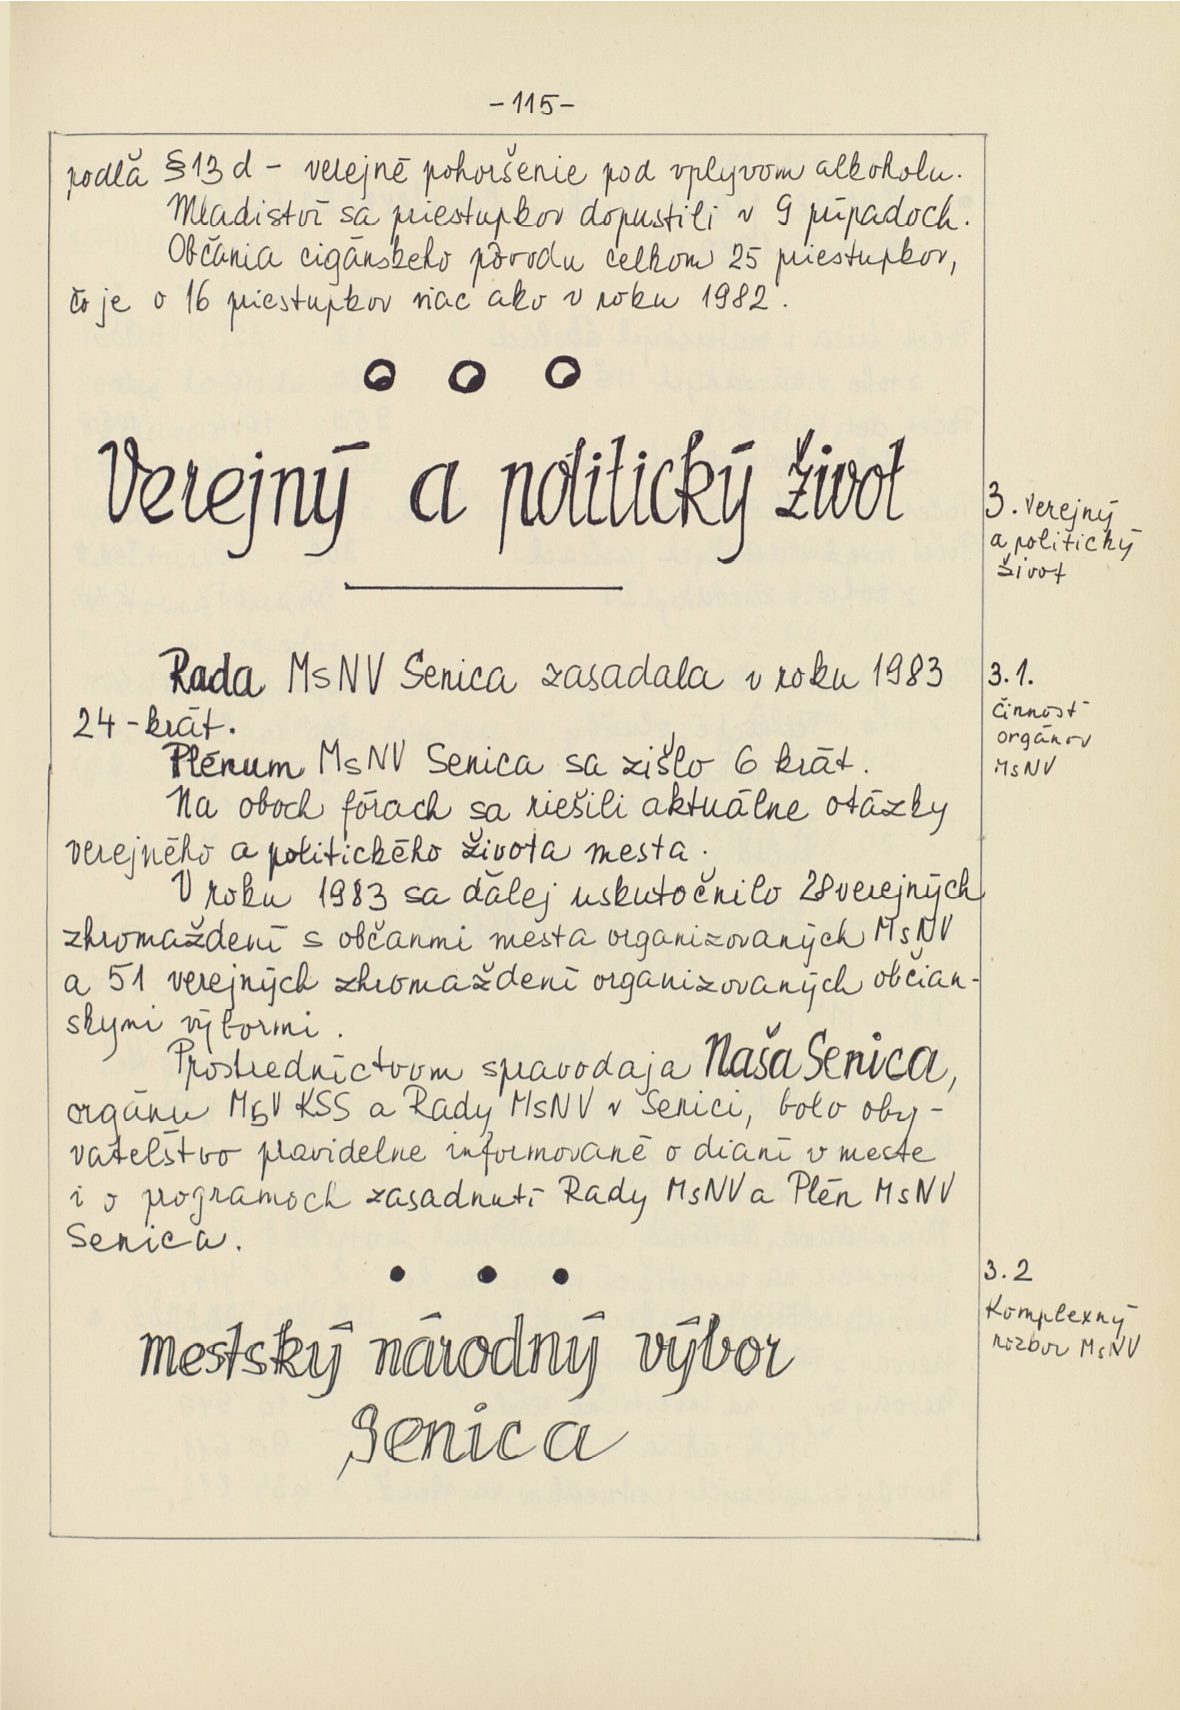 -115-
podľa §13 d - verejné pohoršenie pod vplyvom alkoholu.
Mladiství sa priestupkov dopustili v 9 prípadoch.
Občania cigánskeho pôvodu celkom 25 priestupkov,
čo je o 16 priestupkov viac ako v roku 1982.
Verejný a politický život
3. Verejný
a politický
život
Rada MsNV Senica zasadala v roku 1983
24-krát.
3.1.
činnosť
orgánov
MsNV
Plénum MsNV Senica sa zišlo 6 krát.
Na oboch fórach sa riešili aktuálne otázky
verejného a politického života mesta.
V roku 1983 sa ďalej uskutočnilo 28 verejných
zhromaždení s občanmi mesta organizovaných MsNV
a 51 verejných zhromaždení organizovaných občian-
skymi výbormi.
Prostredníctvom spravodaja Naša Senica,
orgánu MsV KSS a Rady MsNV v Senici, bolo oby-
vateľstvo pravidelne informované o dianí v meste
i o programoch zasadnutí Rady MsNV a Plén MsNV
Senica.
3.2
Komplexný
rozbor MsNV
mestský národný výbor
Senica